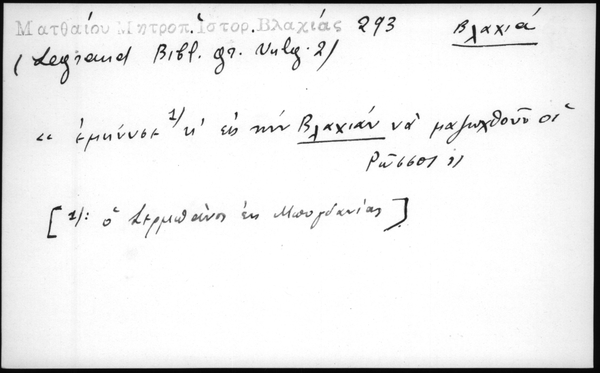 Ματθαίου Μητροπ. Ἱστορ. Βλαχίας 293 Βλαχιά
(Legrand Bibl. gr. Vulg. 2)
« ἐμήνυσε 1) κ' εἰς τὴν Βλαχιάν νὰ μαζωχθοῦν οἱ
Ρῶσσοι »
[1): ὁ Σερμπάνος ἐκ Μπογδανίας]